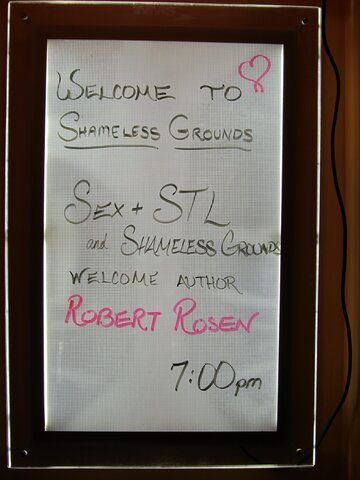 WELCOME TO
SHAMELESS GROUNDS
SEX + STL
and SHAMELESS GROUNDS
WELCOME AUTHOR
ROBERT ROSEN
7:00pm